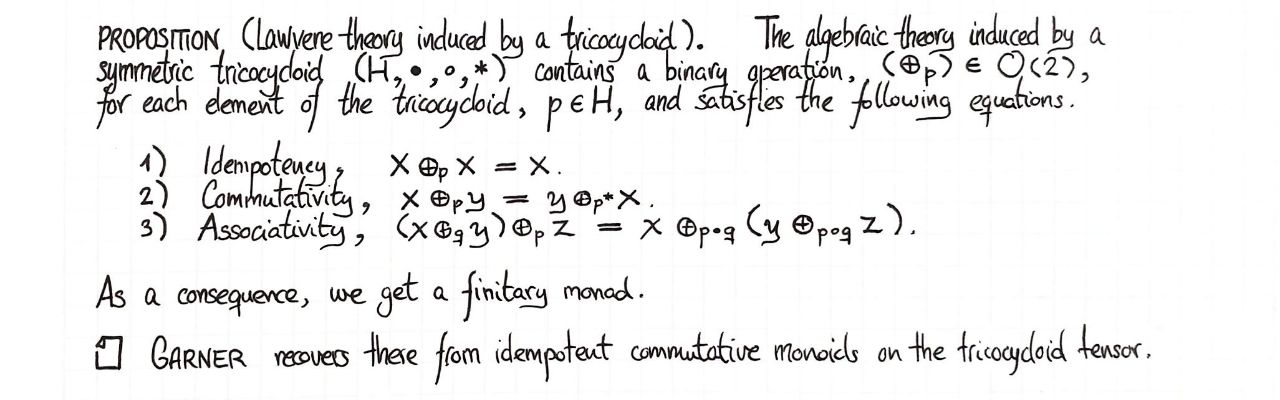 PROPOSITION, (Lawvere theory induced by a tricocycloid). The algebraic theory induced by a
symmetric tricocycloid (H, •, ∘, *) contains a binary operation, (⊕ₚ) ∈ O(2),
for each element of the tricocycloid, p ∈ H, and satisfies the following equations.
1) Idempotency, x ⊕ₚ x = x.
2) Commutativity, x ⊕ₚ y = y ⊕ₚ* x.
3) Associativity, (x ⊕_q y) ⊕ₚ z = x ⊕_{p•q} (y ⊕_{p∘q} z).
As a consequence, we get a finitary monad.
□ GARNER recovers these from idempotent commutative monoids on the tricocycloid tensor.